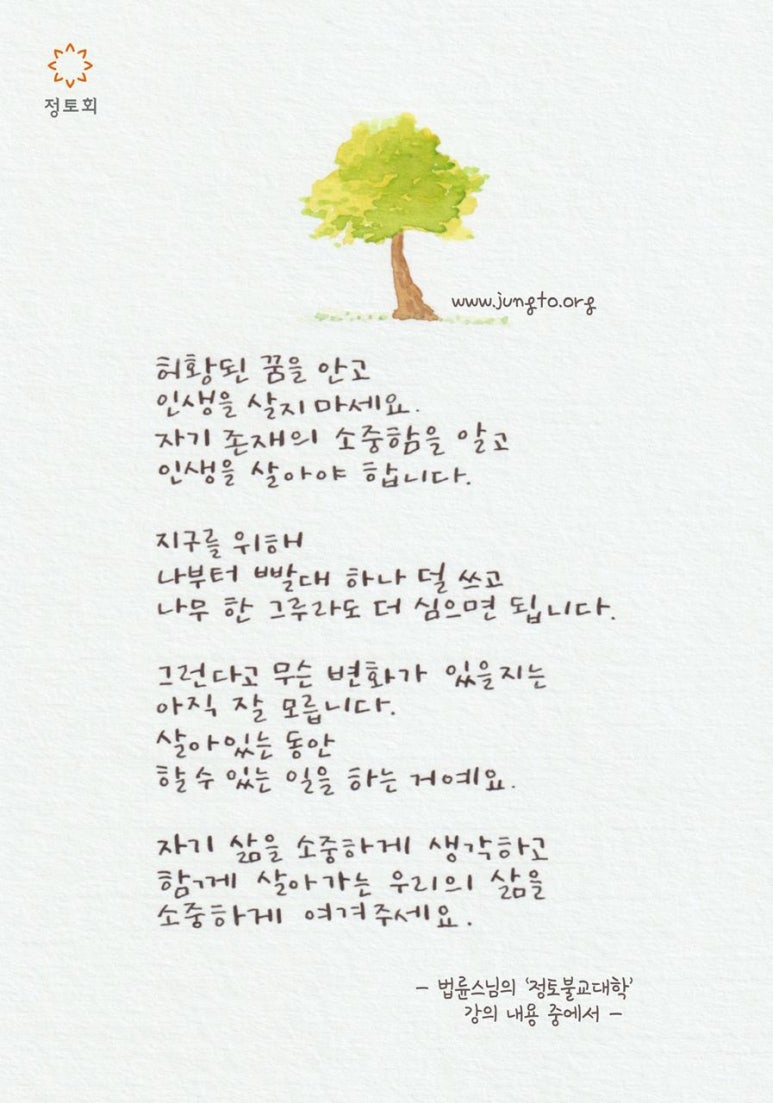 정토회
www.jungto.org
허황된 꿈을 안고
인생을 살지 마세요.
자기 존재의 소중함을 알고
인생을 살아야 합니다.
지구를 위해
나부터 빨대 하나 덜 쓰고
나무 한 그루라도 더 심으면 됩니다.
그런다고 무슨 변화가 있을지는
아직 잘 모릅니다.
살아있는 동안
할 수 있는 일을 하는 거예요.
자기 삶을 소중하게 생각하고
함께 살아가는 우리의 삶을
소중하게 여겨주세요.
- 법륜스님의 '정토불교대학'
강의 내용 중에서 -